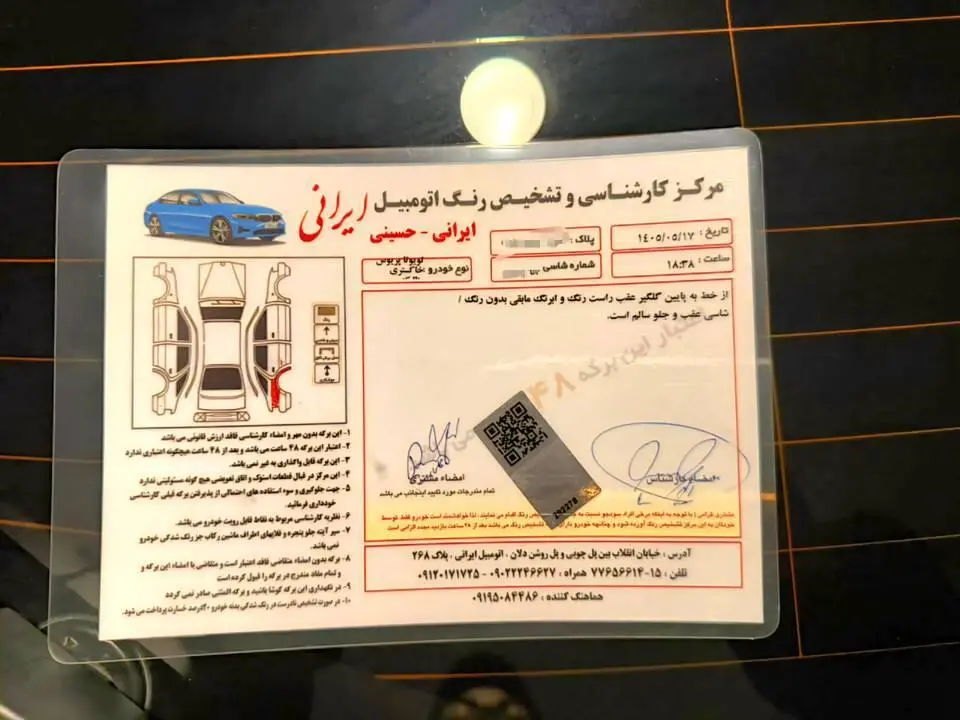 مرکز کارشناسی و تشخیص رنگ اتومبیل ایرانی
ایرانی - حسینی
تاریخ : ۱۴۰۵/۰۵/۱۷
ساعت : ۱۸:۳۸
پلاک :
شماره شاسی
نوع خودرو : تویوتا پریوس
خاکستری
از خط به پایین گلگیر عقب راست رنگ و ابرنگ مابقی بدون رنگ /
شاسی عقب و جلو سالم است.
اعتبار این برگه ۴۸
رنگ
۱- این برگه بدون مهر و امضاء کارشناسی فاقد ارزش قانونی می باشد
۲- اعتبار این برگه ۴۸ ساعت می باشد و بعد از ۴۸ ساعت هیچگونه اعتباری ندارد
۳- این برگه قابل واگذاری به غیر نمی باشد.
۴- این مرکز در قبال قطعات استوک و اتاق تعویضی هیچ گونه مسئولیتی ندارد
۵- جهت جلوگیری و سوء استفاده های احتمالی از پذیرفتن برگه قبلی کارشناسی
خودداری فرمائید.
۶- نظریه کارشناسی مربوط به نقاط قابل رویت خودرو می باشد.
۷- سپر آینه جلو پنجره و قلابهای اطراف ماشین رکاب جز رنگ شدگی خودرو
نمی باشد.
۸- برگه بدون امضاء متقاضی فاقد اعتبار است و متقاضی با امضاء این برگه و
و تمام مفاد مندرج در برگه را قبول کرده است
۹- در نگهداری این برگه کوشا باشید و برگه المثنی صادر نمی گردد
۱۰- در صورت تشخیص نادرست در رنگ شدگی بدنه خودرو ۲۰درصد خسارت پرداخت می شود.
امضاء مشتری
تمام مندرجات مورد تایید اینجانب می باشد
امضاء کارشناس
202278
مشتری گرامی با توجه به اینکه برخی افراد سودجو نسبت به تشخیص رنگ اقدام می نمایند ، لذا خواهشمند است خودرو فقط توسط
خودتان به این مرکز تشخیص رنگ آورده شود و چنانچه خودرو دارای تشخیص رنگ می باشد بعد از ۴۸ ساعت بازدید مجدد الزامی است
آدرس : خیابان انقلاب بین پل چوبی و پل روشن دلان ، اتومبیل ایرانی ، پلاک ۲۶۸
تلفن : ۱۵-۷۷۶۵۶۶۱۴ همراه : ۰۹۰۲۲۲۴۶۶۲۷ - ۰۹۱۲۰۱۷۱۷۲۵
هماهنگ کننده : ۰۹۱۹۵۰۸۴۴۸۶